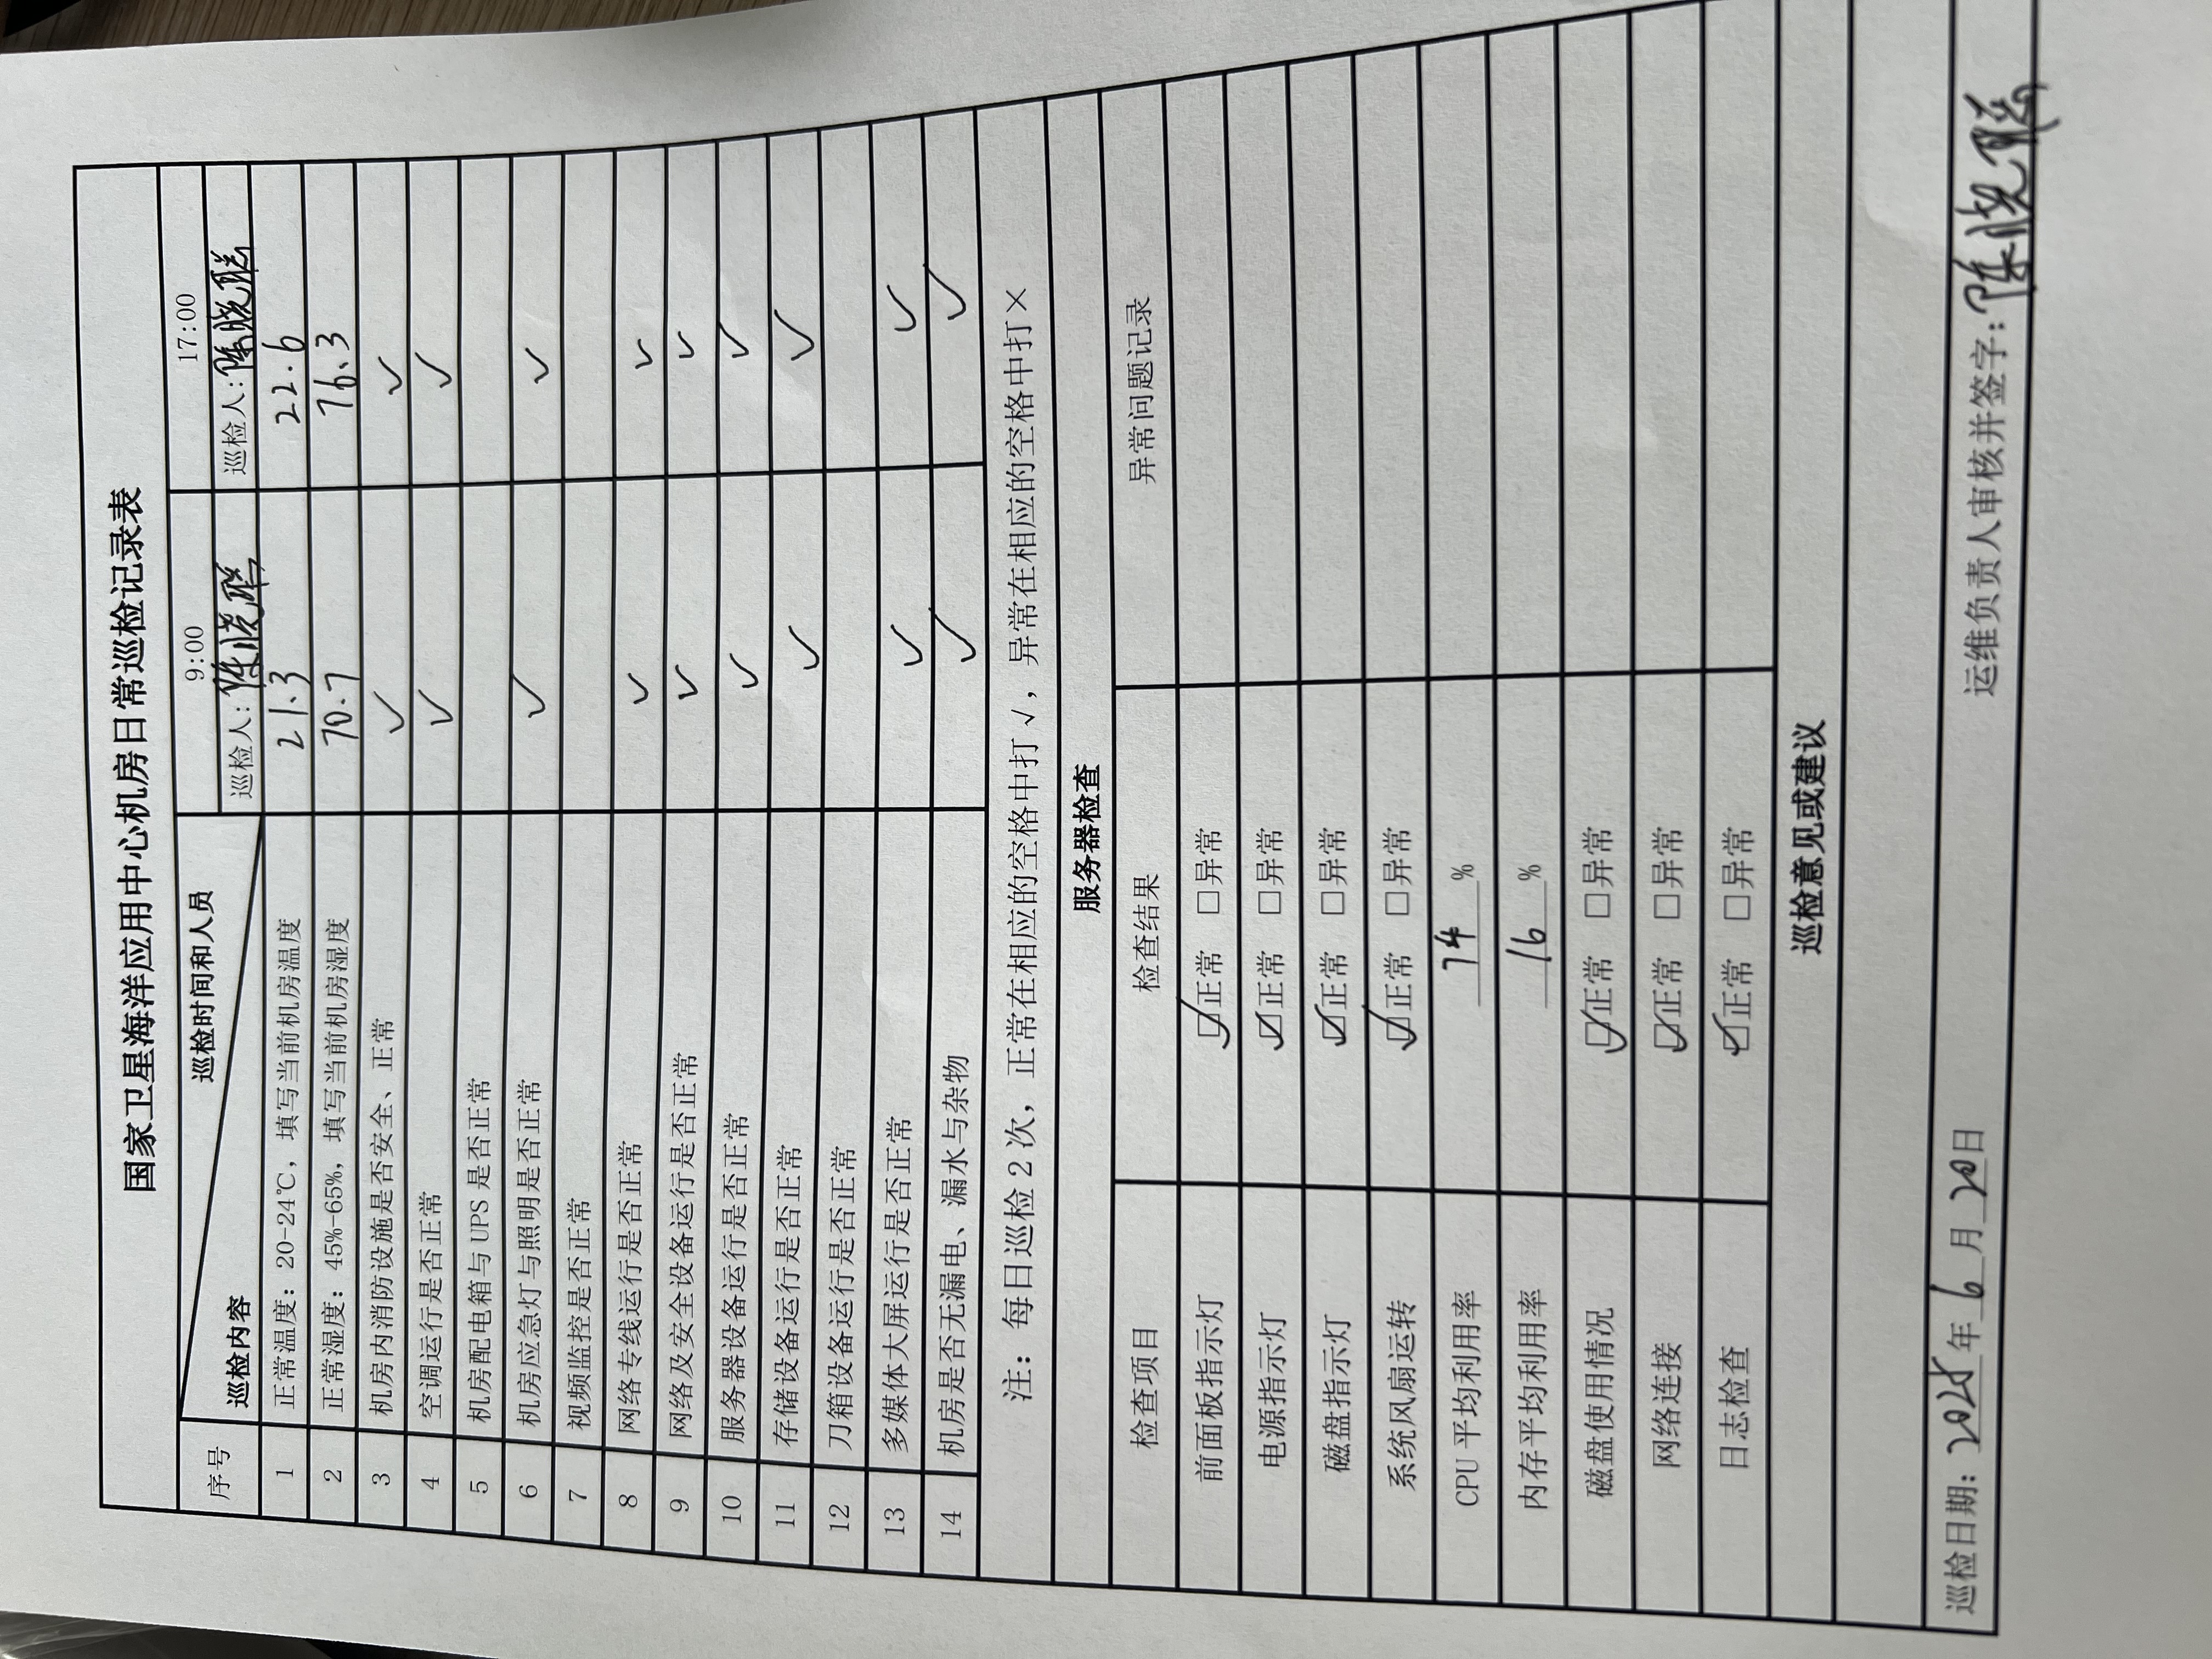 国家卫星海洋应用中心机房日常巡检记录表
序号 巡检内容 巡检时间和人员 9:00 17:00
巡检人:陈晓聪 巡检人:陈晓聪
1 正常温度:20-24℃,填写当前机房温度 21.3 22.6
2 正常湿度:45%-65%,填写当前机房湿度 70.7 76.3
3 机房内消防设施是否安全、正常 ✓ ✓
4 空调运行是否正常 ✓ ✓
5 机房配电箱与 UPS 是否正常
6 机房应急灯与照明是否正常 ✓ ✓
7 视频监控是否正常
8 网络专线运行是否正常 ✓ ✓
9 网络及安全设备运行是否正常 ✓ ✓
10 服务器设备运行是否正常 ✓ ✓
11 存储设备运行是否正常 ✓ ✓
12 刀箱设备运行是否正常
13 多媒体大屏运行是否正常 ✓ ✓
14 机房是否无漏电、漏水与杂物 ✓ ✓
注:每日巡检 2 次,正常在相应的空格中打√,异常在相应的空格中打×
服务器检查
检查项目 检查结果 异常问题记录
前面板指示灯 ☑正常 □异常
电源指示灯 ☑正常 □异常
磁盘指示灯 ☑正常 □异常
系统风扇运转 ☑正常 □异常
CPU 平均利用率 74 %
内存平均利用率 16 %
磁盘使用情况 ☑正常 □异常
网络连接 ☑正常 □异常
日志检查 ☑正常 □异常
巡检意见或建议
巡检日期:2025年 6 月 20日 运维负责人审核并签字:陈晓聪